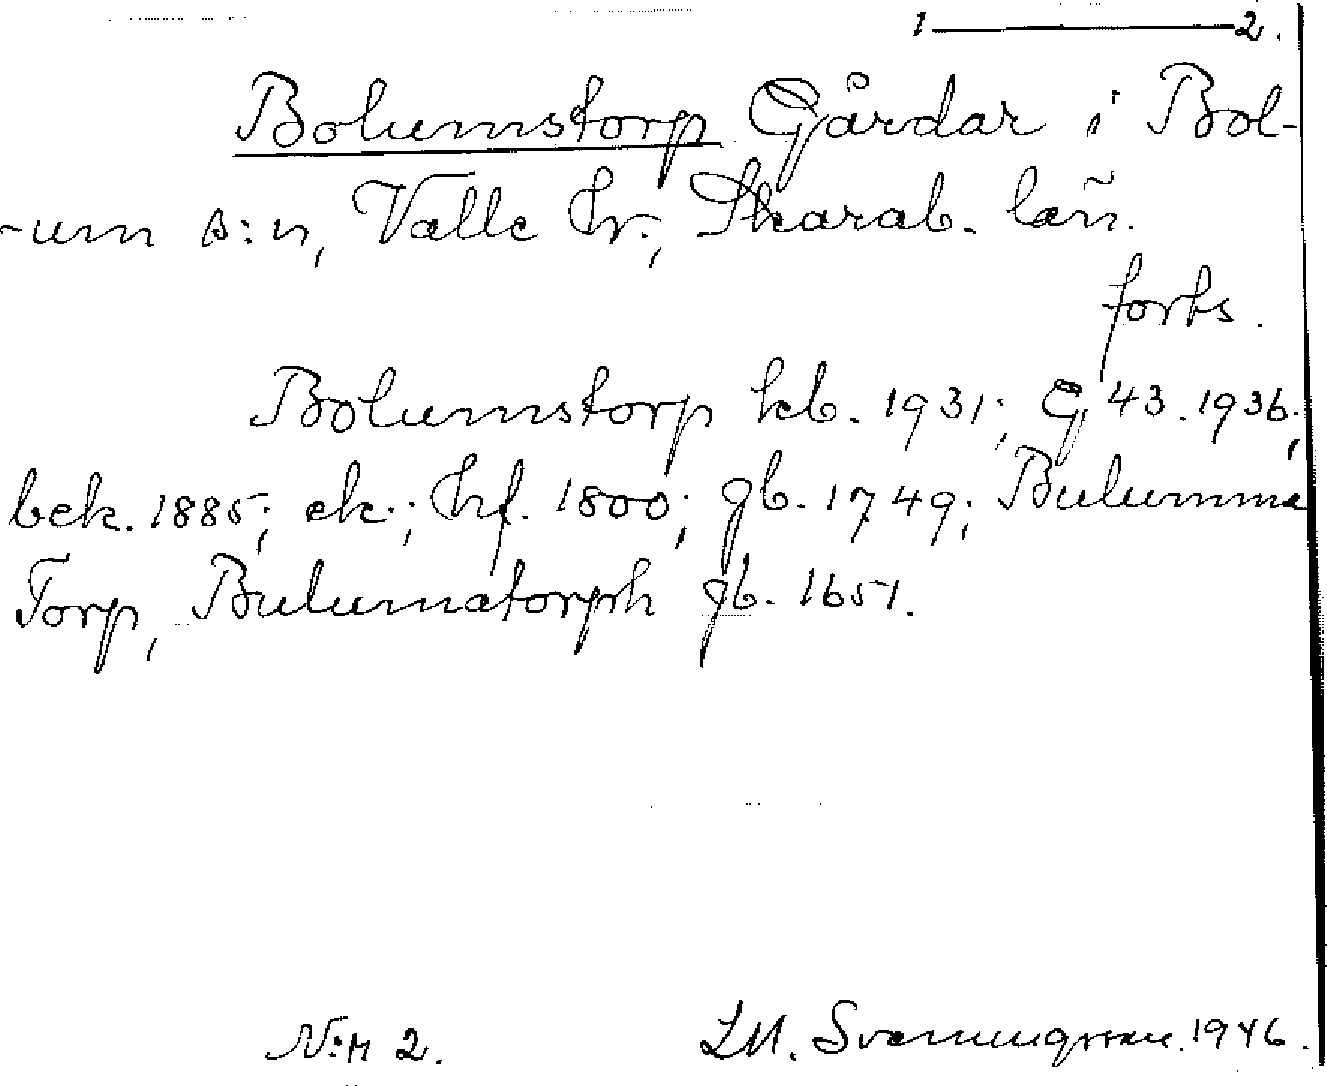 1 — 2.
Bolumstorp Gårdar i Bol-
-um s:n, Valle hr., Skarab. län.
forts.
Bolumstorp kb. 1931; G. 43. 1936;
bek. 1885; ek.; hf. 1800; gb. 1749; Bulumma
Torp, Bulumatorph gb. 1651.
N:r 2. I.M. Svenungsson. 1946.